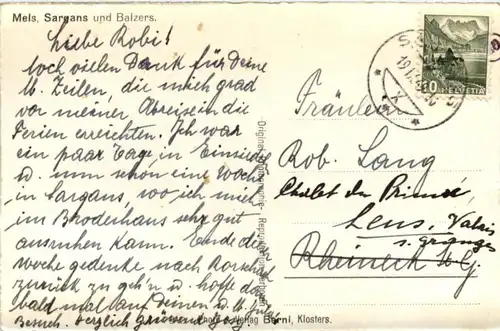 Mels, Sargans und Balzers.
Liebe Robi!
Noch vielen Dank für Deine
lb. Zeilen, die mich grad
vor meiner Abreise in die
Ferien erreichten. Ich war
ein paar Tage in Einsied
u. nun schon eine Woche
in Sargans, wo ich mich
im Bruderhaus sehr gut
ausruhen kann. Ende der
Woche gedenke nach Rorschach
zurück zu geh'n u. hoffe da
bald mal auf Deinen u. lb.
Besuch. Herzlich grüssend
Verlag Berni, Klosters.
10
HELVETIA
Fräulein
Rob. Lang
Chalet du Primé,
Lens, Valais
s. Granges
Rheineck